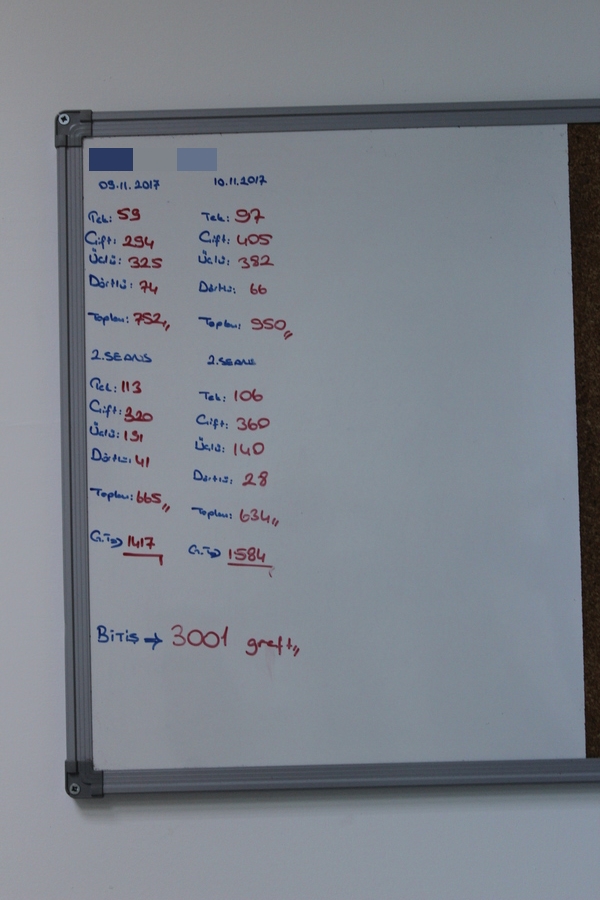 09.11.2017
Tek: 59
Çift: 294
Üçlü: 325
Dörtlü: 74
Toplam: 752,,
2.SEANS
Tek: 113
Çift: 320
Üçlü: 191
Dörtlü: 41
Toplam: 665,,
G.T→ 1417
10.11.2017
Tek: 97
Çift: 405
Üçlü: 382
Dörtlü: 66
Toplam: 950,,
2.SEANS
Tek: 106
Çift: 360
Üçlü: 140
Dörtlü: 28
Toplam: 634,,
G.T→ 1584
BİTİŞ → 3001 greft,,